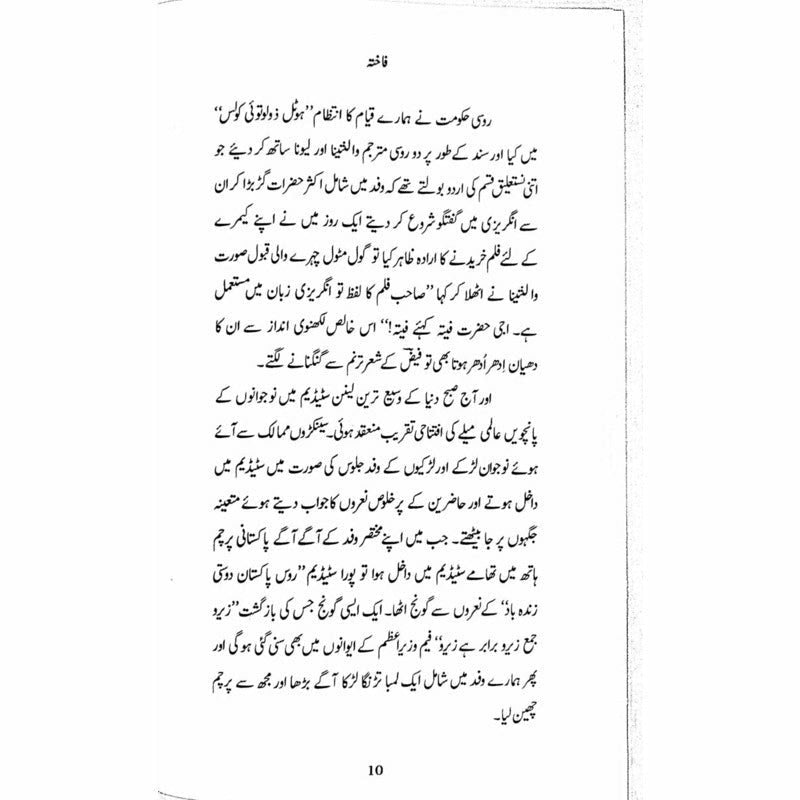 فاختہ
روسی حکومت نے ہمارے قیام کا انتظام ”ہوٹل ذولوتوئی کولس“
میں کیا اور سند کے طور پر دو روسی مترجم والنتینا اور لیونا ساتھ کر دیئے جو
اتنی نستعلیق قسم کی اردو بولتے تھے کہ وفد میں شامل اکثر حضرات گڑبڑا کر ان
سے انگریزی میں گفتگو شروع کر دیتے ایک روز میں نے اپنے کیمرے
کے لئے فلم خریدنے کا ارادہ ظاہر کیا تو گول مٹول چہرے والی قبول صورت
والنتینا نے اٹھلا کر کہا ”صاحب فلم کا لفظ تو انگریزی زبان میں مستعمل
ہے۔ اجی حضرت فیتہ کہئے فیتہ!“ اس خالص لکھنوی انداز سے ان کا
دھیان اِدھر اُدھر ہوتا بھی تو فیضؔ کے شعر ترنم سے گنگنانے لگتے۔
اور آج صبح دنیا کے وسیع ترین لینن سٹیڈیم میں نوجوانوں کے
پانچویں عالمی میلے کی افتتاحی تقریب منعقد ہوئی۔ سینکڑوں ممالک سے آئے
ہوئے نوجوان لڑکے اور لڑکیوں کے وفد جلوس کی صورت میں سٹیڈیم میں
داخل ہوتے اور حاضرین کے پرخلوص نعروں کا جواب دیتے ہوئے متعینہ
جگہوں پر جا بیٹھتے۔ جب میں اپنے مختصر وفد کے آگے آگے پاکستانی پرچم
ہاتھ میں تھامے سٹیڈیم میں داخل ہوا تو پورا سٹیڈیم ”روس پاکستان دوستی
زندہ باد“ کے نعروں سے گونج اٹھا۔ ایک ایسی گونج جس کی بازگشت ”زیرو
جمع زیرو برابر ہے زیرو“ فیم وزیراعظم کے ایوانوں میں بھی سنی گئی ہو گی اور
پھر ہمارے وفد میں شامل ایک لمبا تڑنگا لڑکا آگے بڑھا اور مجھ سے پرچم
چھین لیا۔
10